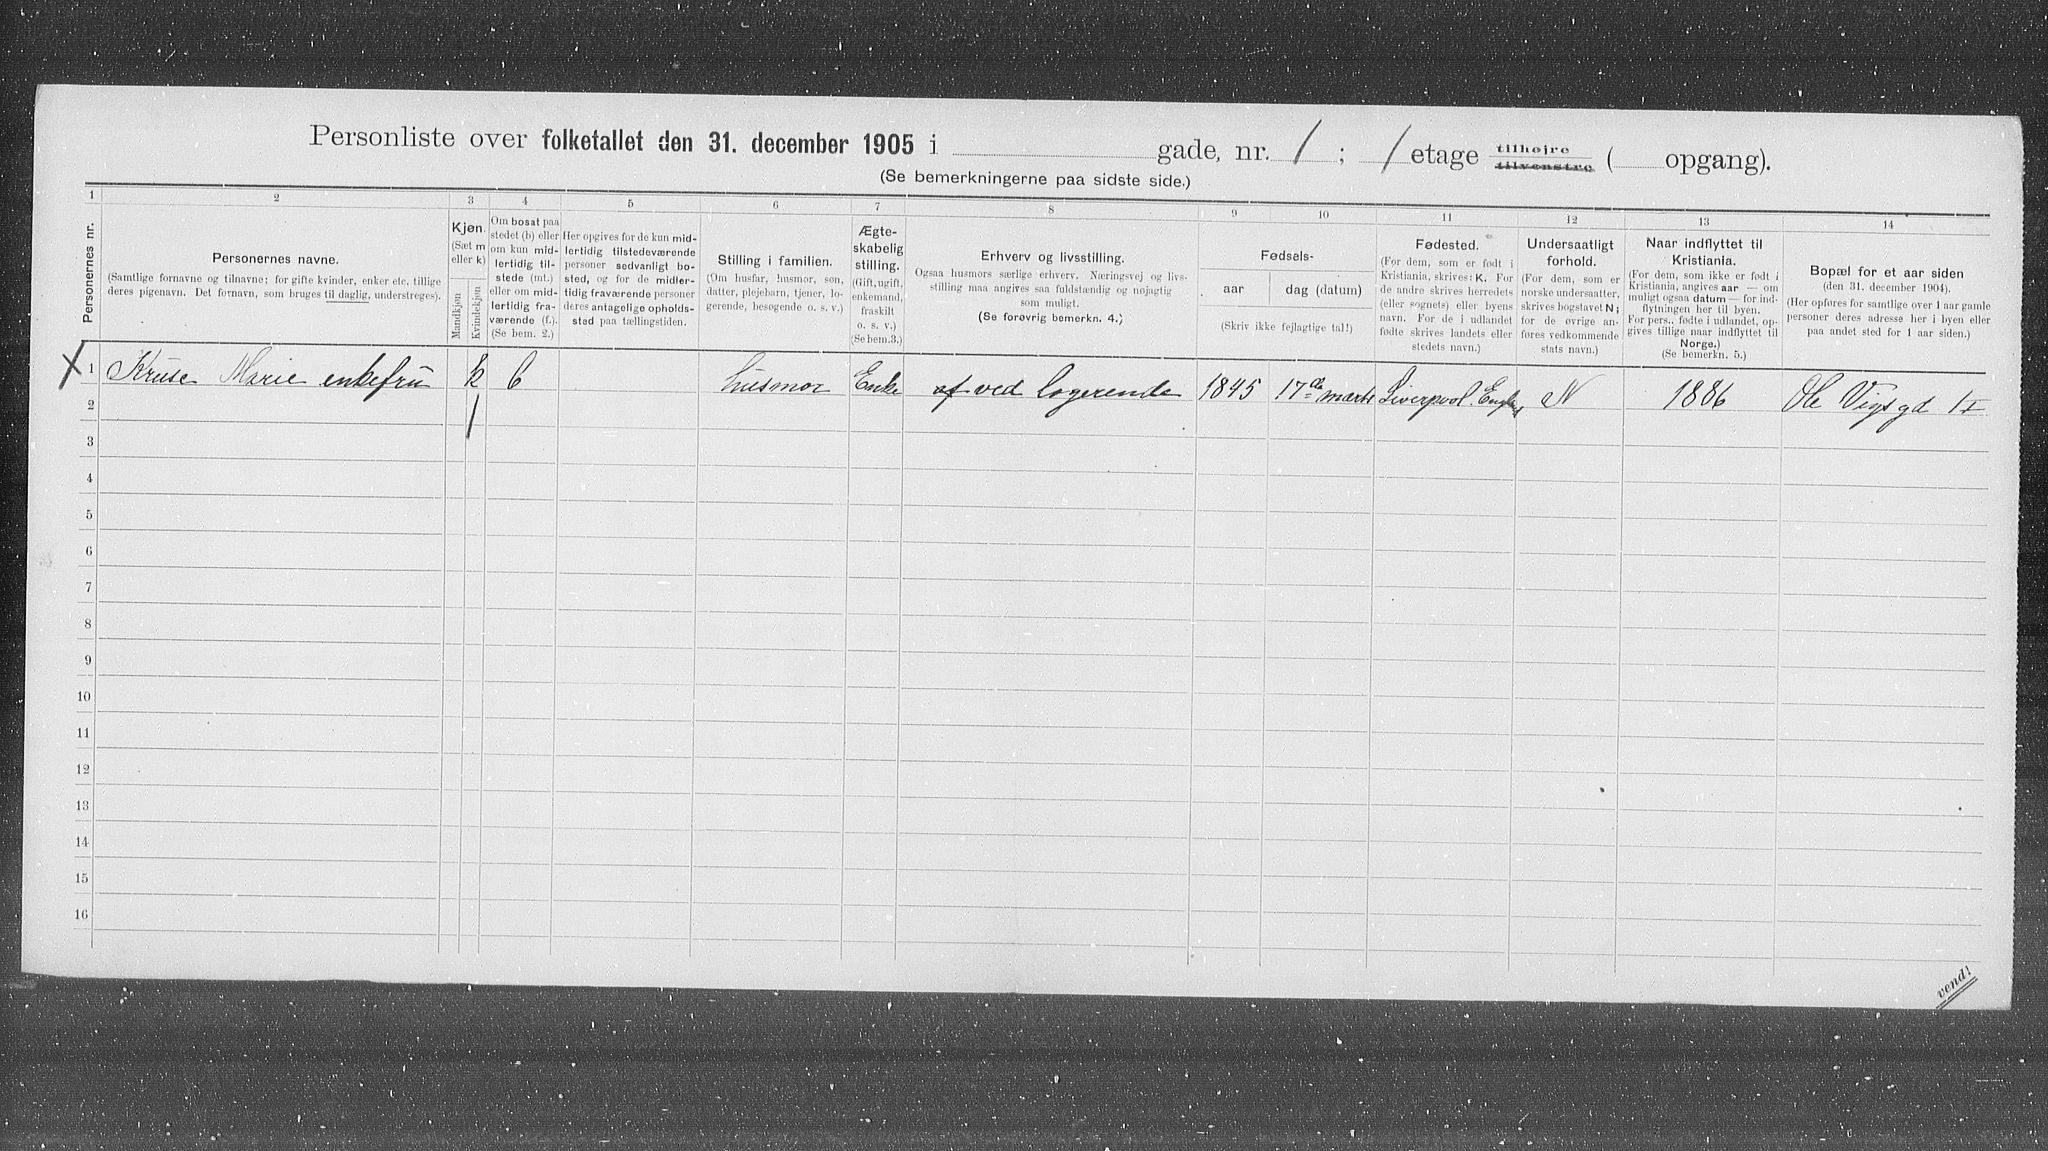 Personliste over folketallet den 31. december 1905 i gade, nr. 1 ; 1 etage tilhøjre tilvenstre ( opgang).
(Se bemerkningerne paa sidste side.)
1 2 3 4 5 6 7 8 9 10 11 12 13 14
Personernes nr.
Personernes navne.
(Samtlige fornavne og tilnavne; for gifte kvinder, enker etc. tillige
deres pigenavn. Det fornavn, som bruges til daglig, understreges).
Kjøn.
(Sæt m
eller k)
Mandkjøn
Kvindekjøn
Om bosat paa
stedet (b) eller
om kun mid-
lertidig til-
stede (mt.)
eller om mid-
lertidig fra-
værende (f.).
(Se bem. 2.)
Her opgives for de kun mid-
lertidig tilstedeværende
personer sedvanligt bo-
sted, og for de midler-
tidig fraværende personer
deres antagelige opholds-
sted paa tællingstiden.
Stilling i familien.
(Om husfar, husmor, søn,
datter, plejebarn, tjener, lo-
gerende, besøgende o. s. v.)
Ægte-
skabelig
stilling.
(Gift, ugift,
enkemand,
fraskilt
o. s. v.)
(Se bem.3.)
Erhverv og livsstilling.
Ogsaa husmors særlige erhverv. Næringsvej og livs-
stilling maa angives saa fuldstændig og nøjagtig
som muligt.
(Se forøvrig bemerkn. 4.)
Fødsels-
aar
dag (datum)
(Skriv ikke fejlagtige tal!)
Fødested.
(For dem, som er født i
Kristiania, skrives: K. For
de andre skrives herredets
(eller sognets) eller byens
navn. For de i udlandet
fødte skrives landets eller
stedets navn.)
Undersaatligt
forhold.
(For dem, som er
norske undersaatter,
skrives bogstavet N;
for de øvrige an-
føres vedkommende
stats navn.)
Naar indflyttet til
Kristiania.
(For dem, som ikke er født i
Kristiania, angives aar — om
muligt ogsaa datum — for ind-
flytningen her til byen.
For pers., fødte i udlandet, op-
gives tillige naar indflyttet til
Norge.)
(Se bemerkn. 5.)
Bopæl for et aar siden
(den 31. december 1904).
(Her opføres for samtlige over 1 aar gamle
personer deres adresse her i byen eller
paa andet sted for 1 aar siden.)
X 1 Kruse Marie enkefru k b husmor Enke af ved logerende 1845 17de marts Liverpool. England N 1886 Ole Vigs gd 1 I
2 1
3
4
5
6
7
8
9
10
11
12
13
14
15
16
vend!